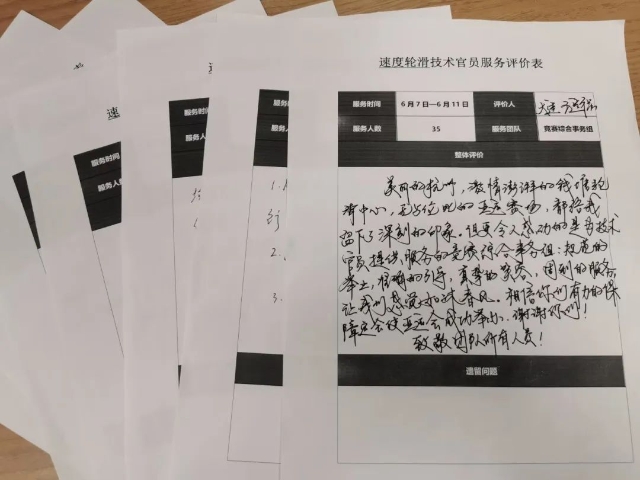 速度轮滑技术官员服务评价表
服务时间 6月7日—6月11日 评价人
服务人数 35 服务团队 竞赛综合事务组
整体评价
美丽的杭州,激情澎湃的钱塘轮
滑中心,无与伦比的亚运赛场,都给我
留下了深刻的印象。但更令人感动的是为技术
官员提供服务的竞赛综合事务组:规范的
举止,准确的引导,真挚的笑容,周到的服务,
让我们感觉如沐春风。相信你们有力的保
障定会使亚运会成功举办。谢谢你们!
致敬团队所有人员!
遗留问题
服务时
服务人
1.
2.
3.
速
服务时间
服务人